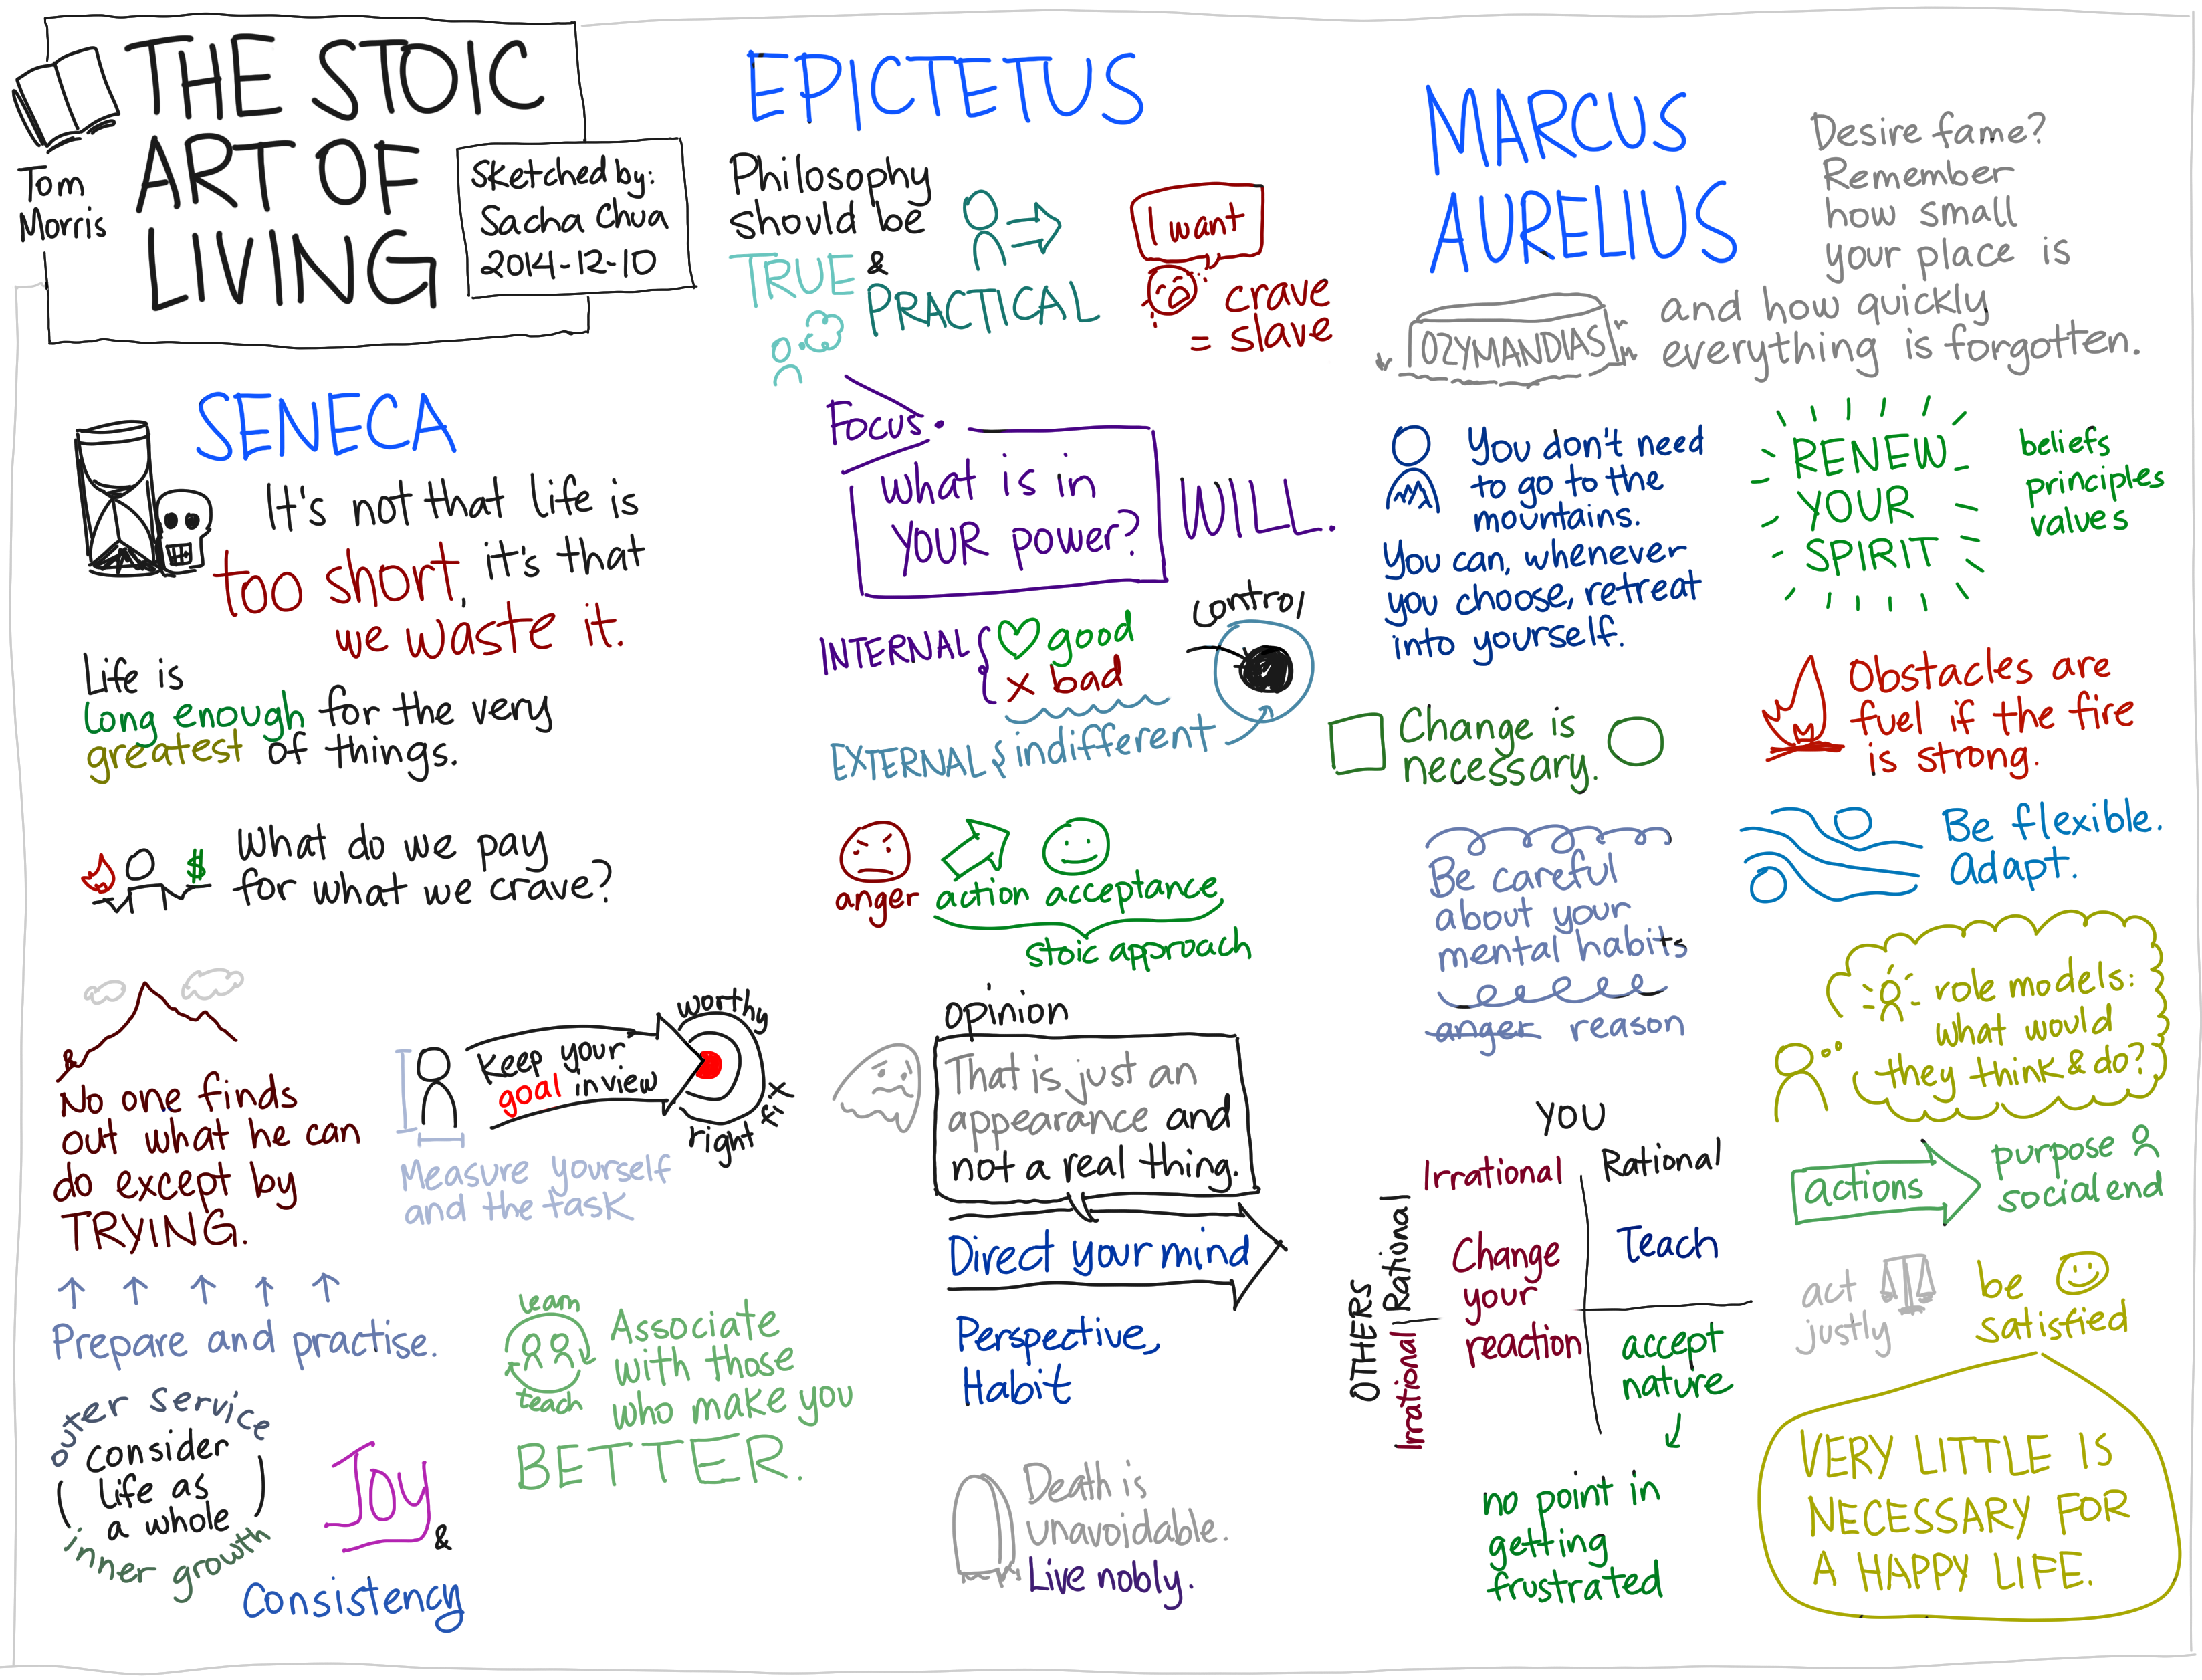 THE STOIC
ART OF
LIVING
Tom
Morris
Sketched by:
Sacha Chua
2014-12-10
SENECA
It's not that life is
too short, it's that
we waste it.
Life is
long enough for the very
greatest of things.
$
What do we pay
for what we crave?
No one finds
out what he can
do except by
TRYING.
Keep your
goal in view
worthy
fit
right
Measure yourself
and the task
Prepare and practise.
outer service
consider
life as
a whole
inner growth
Joy
&
Consistency
learn
teach
Associate
with those
who make you
BETTER.
EPICTETUS
Philosophy
should be
TRUE &
PRACTICAL
I want
crave
= slave
Focus.
What is in
YOUR power?
WILL.
INTERNAL
good
x bad
EXTERNAL
indifferent
control
anger
action acceptance
stoic approach
opinion
That is just an
appearance and
not a real thing.
Direct your mind
Perspective,
Habit
Death is
unavoidable.
Live nobly.
MARCUS
AURELIUS
Desire fame?
Remember
how small
your place is
and how quickly
everything is forgotten.
OZYMANDIAS
You don't need
to go to the
mountains.
You can, whenever
you choose, retreat
into yourself.
RENEW
YOUR
SPIRIT
beliefs
principles
values
Change is
necessary.
Obstacles are
fuel if the fire
is strong.
Be careful
about your
mental habits
anger reason
Be flexible.
Adapt.
role models:
what would
they think & do?
YOU
Irrational
Rational
OTHERS
Rational
Irrational
Change
your
reaction
Teach
accept
nature
no point in
getting
frustrated
actions
purpose
social end
act
justly
be
satisfied
VERY LITTLE IS
NECESSARY FOR
A HAPPY LIFE.